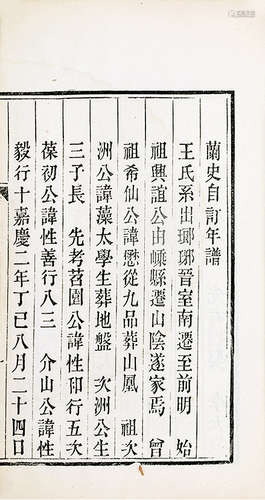 蘭史自訂年譜
王氏系出瑯琊晉室南遷至前明　始
祖興誼公由嵊縣遷山陰遂家焉　曾
祖希仙公諱懋從九品葬山凰　祖次
洲公諱藻太學生葬地盤　次洲公生
三子長　先考茗園公諱性印行五次
葆初公諱性善行八三　介山公諱性
毅行十嘉慶二年丁巳八月二十四日